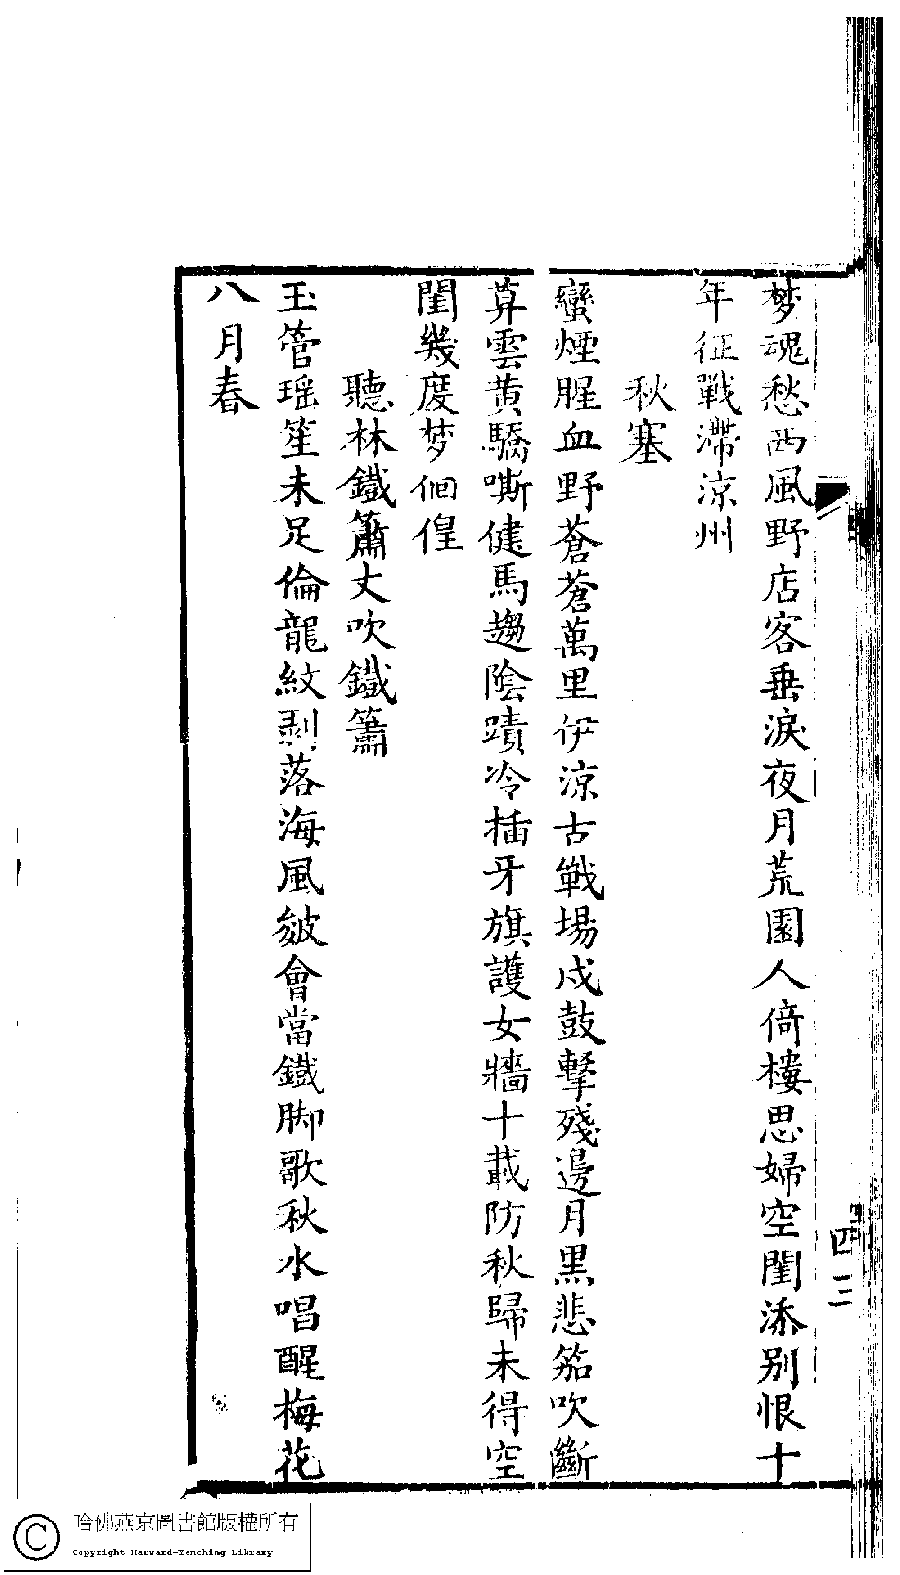 梦魂愁西風野店客垂淚夜月荒園人倚樓思婦空閨添别恨十
年征戰滯涼州
秋塞
蠻煙腥血野蒼蒼萬里伊涼古戰場戍鼓擊殘邊月黒悲笳吹斷
莫雲黄驕嘶健馬趨陰蹟冷插牙旗護女牆十載防秋歸未得空
閨幾度梦徊徨
聽林鐵簫丈吹鐵簫
玉管瑶笙未足倫龍紋剥落海風皴會當鐵脚歌秋水唱醒梅花
八月春
四三
哈佛燕京圖書館版權所有
Copyright Harvard-Yenching Library